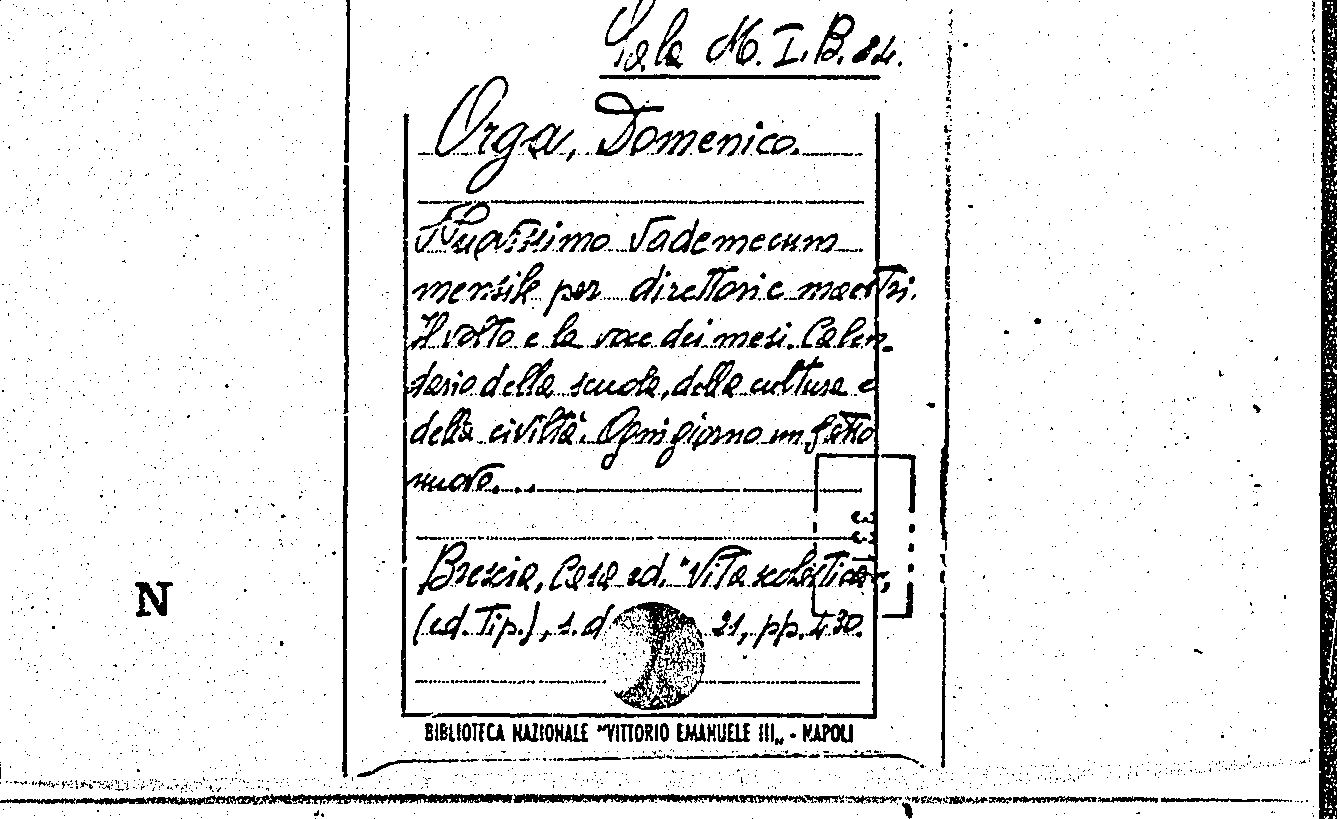 Sala M. I. B. 84.
Orga, Domenico.
Nuovissimo Vademecum
mensile per direttori e maestri.
Il volto e la voce dei mesi. Calen-
dario della scuola, della cultura e
della civiltà. Ogni giorno un fatto
nuovo....
Brescia, Casa ed. "Vita scolastica",
(ed. Tip.), s. d. 21, pp. 430.
N
BIBLIOTECA NAZIONALE "VITTORIO EMANUELE III„ - NAPOLI